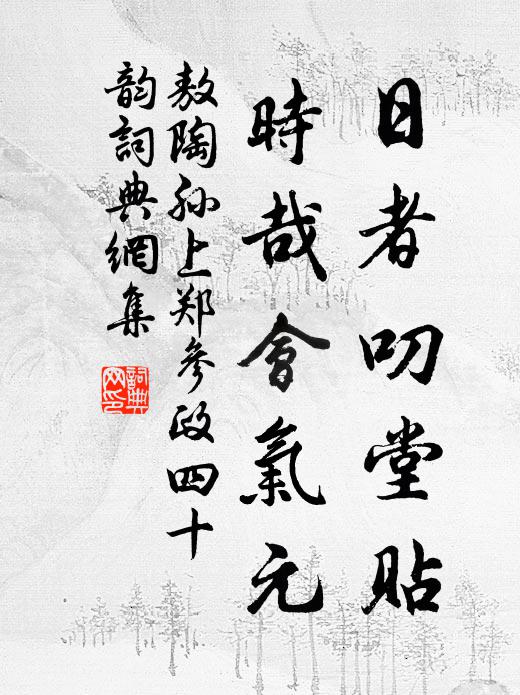 日者叨堂貼
時哉會氣元
敖陶孙上郑參政四十
韵詞典網集
詞典網印